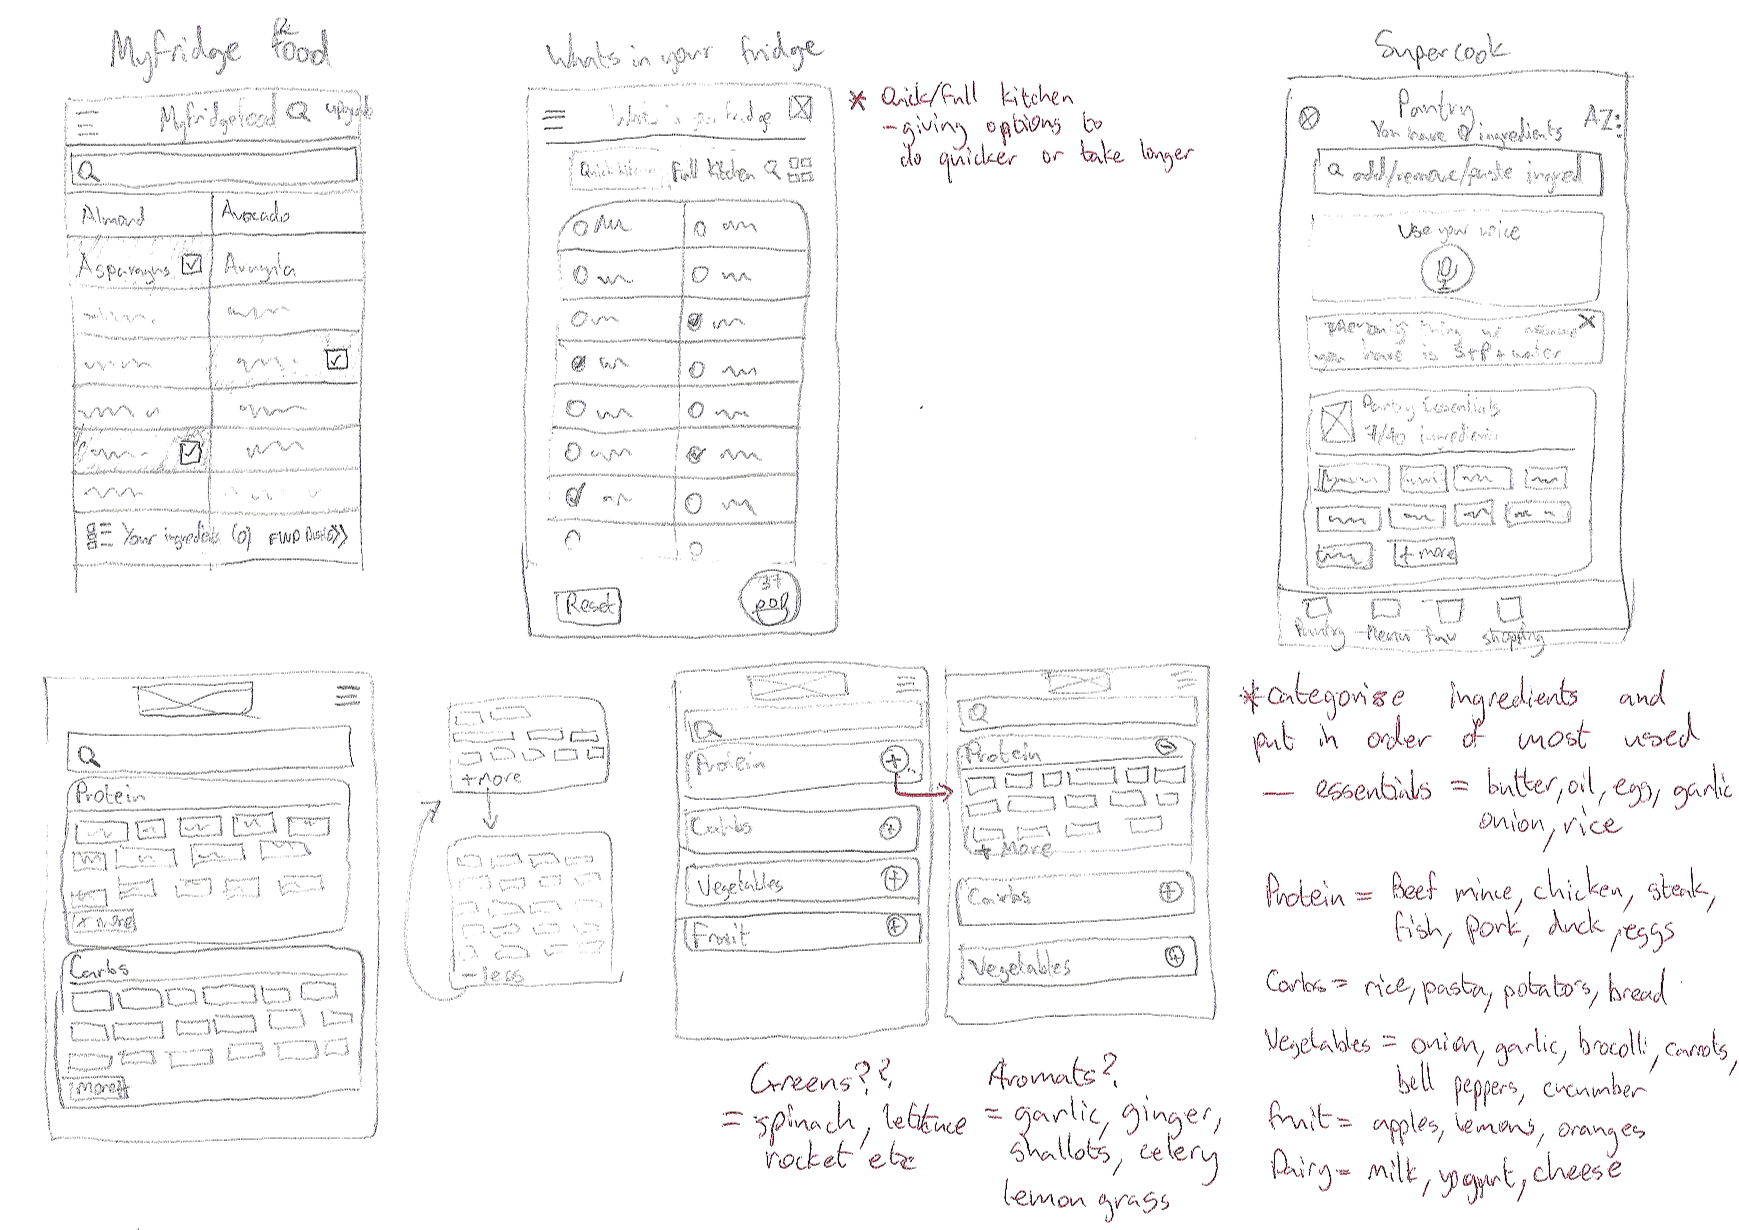 Myfridge food
MyfridgeFood upgrade
Almond
Avocado
Asparagus
Arugula
Your ingredients (0) FIND DISHES>>
Whats in your fridge
Whats in your fridge
Quick kitchen Full Kitchen
Reset
37
* Quick/Full kitchen
- giving options to
do quicker or take longer
Supercook
Pantry
You have 0 ingredients
AZ:
add/remove/paste ingred
Use your voice
The only thing we assume
you have is S+P + water
X
Pantry Essentials
7/40 ingredients
+ more
Pantry Menu fav shopping
Protein
+ more
Carbs
More+
+More
- less
Protein
Carbs
Vegetables
Fruit
Protein
+ More
Carbs
Vegetables
*categorise ingredients and
put in order of most used
— essentials = butter, oil, egg, garlic
onion, rice
Protein = Beef mince, chicken, steak,
fish, pork, duck, eggs
Carbs = rice, pasta, potatos, bread
Vegetables = onion, garlic, brocolli, carrots,
bell peppers, cucumber
fruit = apples, lemons, oranges
Dairy = milk, yogurt, cheese
Greens??
= spinach, lettuce
rocket etc
Aromats?
= garlic, ginger,
shallots, celery
lemon grass